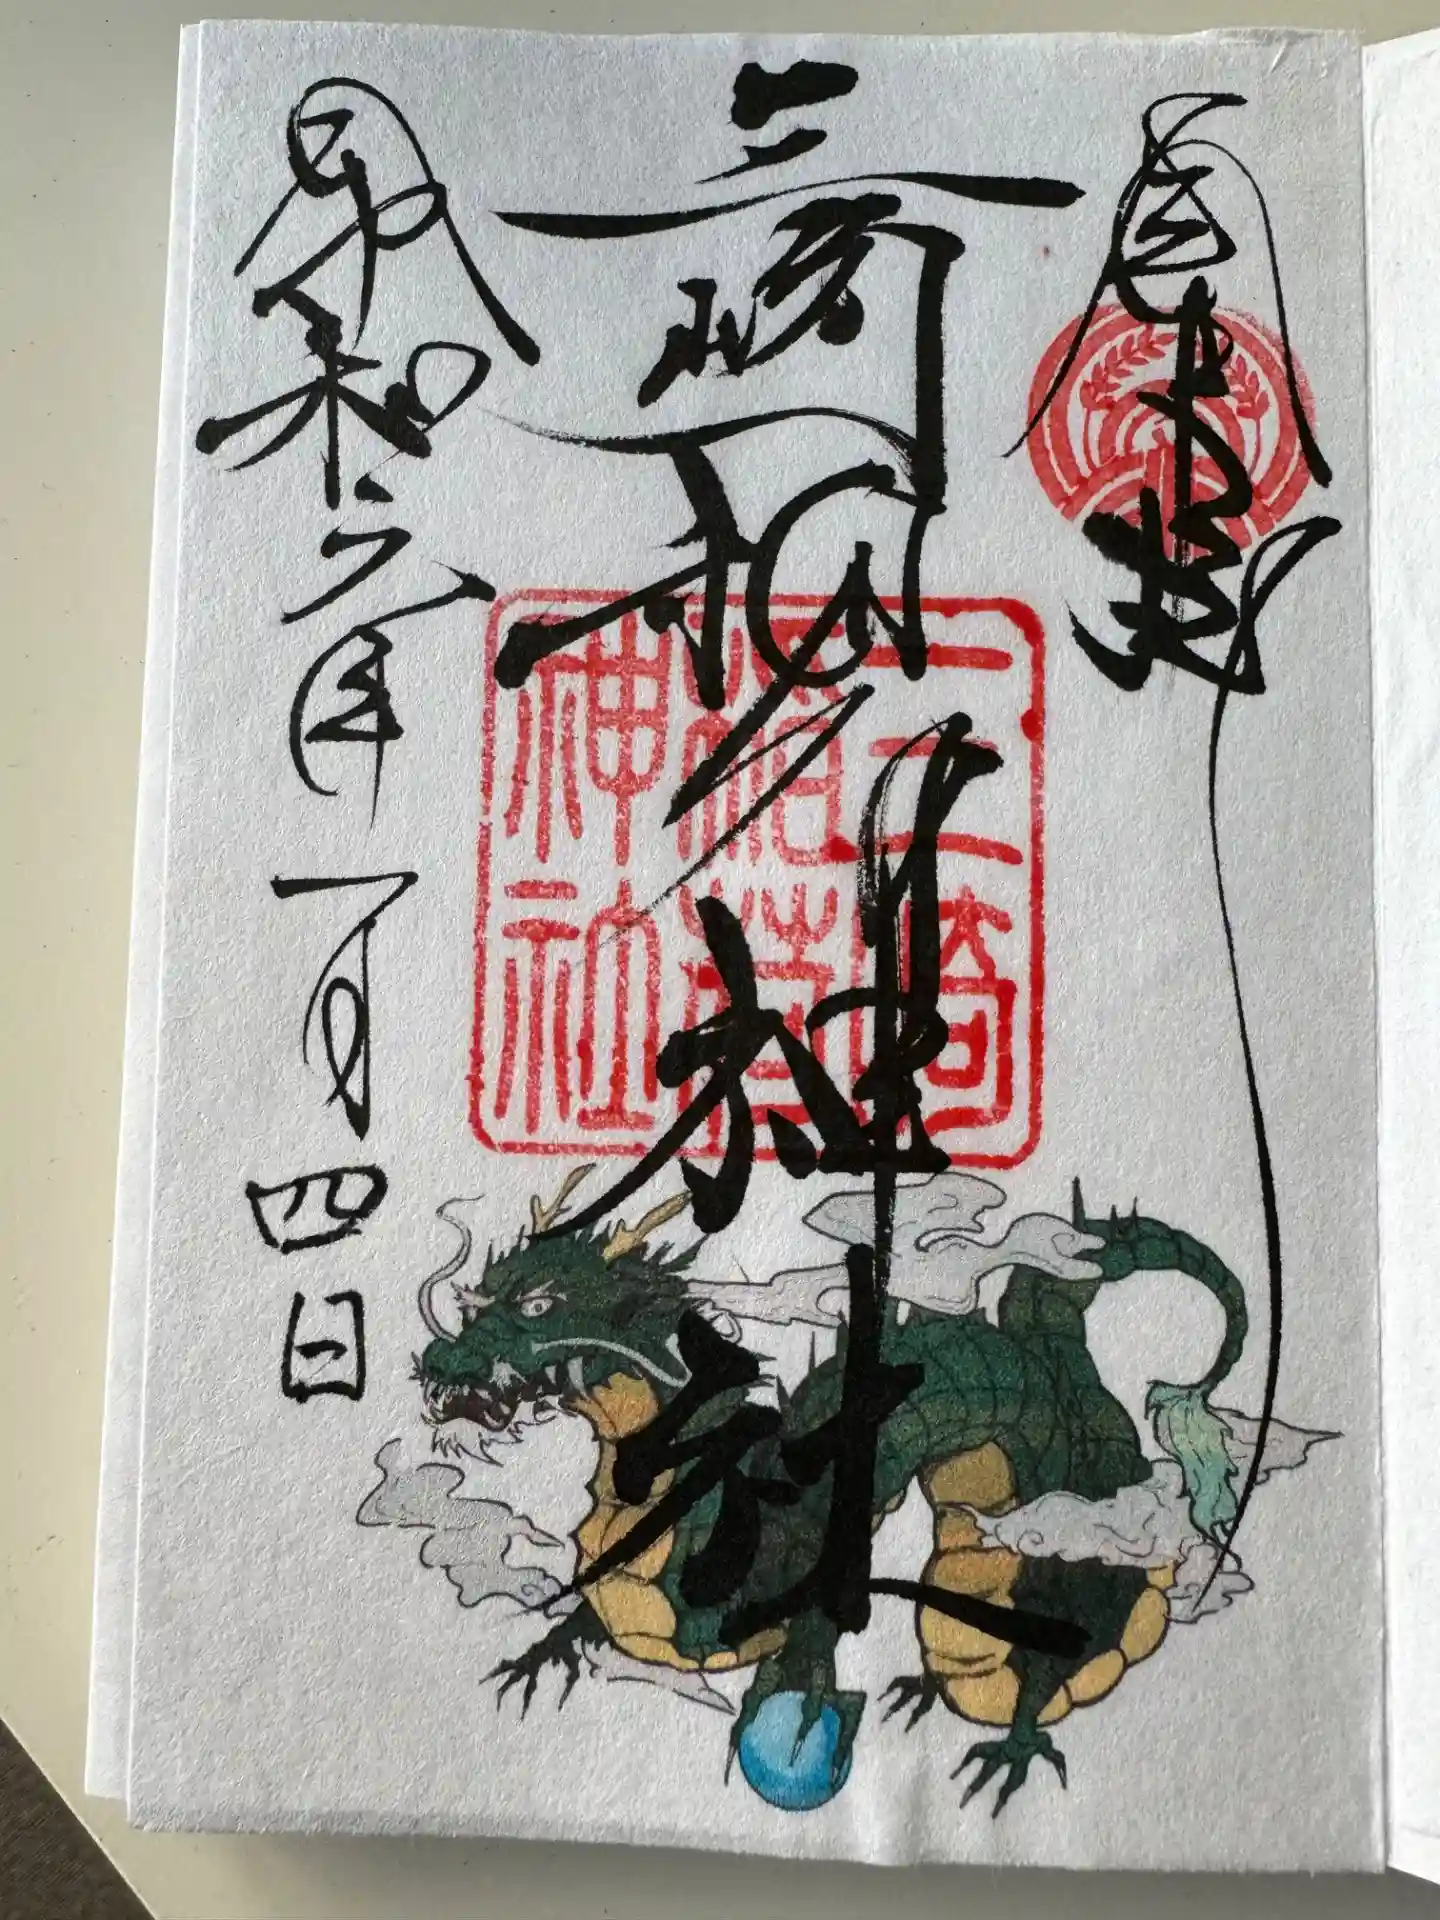 三崎稲荷神社
令和六年一月四日
三崎
稲荷
神社